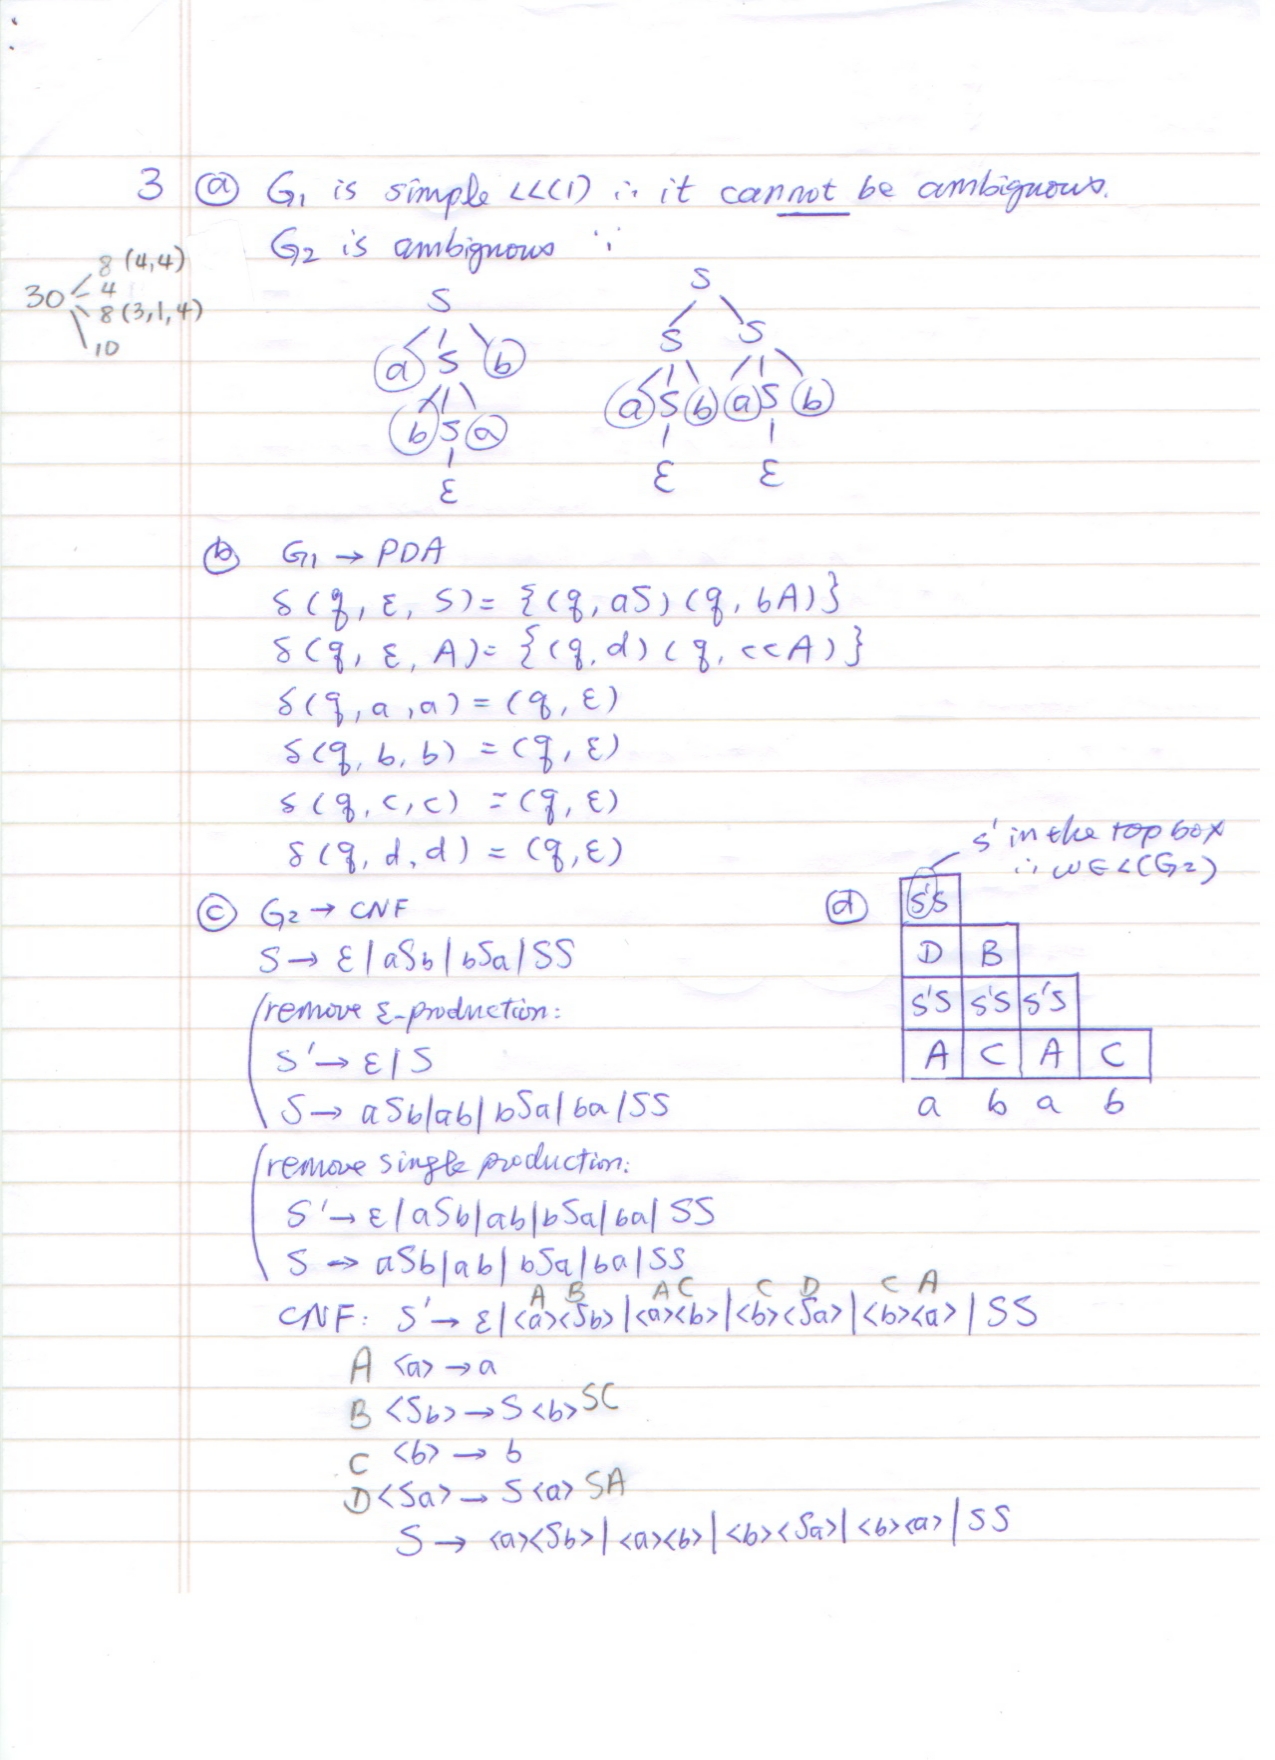 3 (a) G₁ is simple LL(1) ∴ it cannot be ambiguous.
G₂ is ambiguous ∵
30
8 (4,4)
4
8 (3,1,4)
10
S
a S b
b S a
ε
S
S S
a S b a S b
ε ε
(b) G₁ → PDA
δ(q, ε, S) = {(q, aS) (q, bA)}
δ(q, ε, A) = {(q, d) (q, ccA)}
δ(q, a, a) = (q, ε)
δ(q, b, b) = (q, ε)
δ(q, c, c) = (q, ε)
δ(q, d, d) = (q, ε)
(c) G₂ → CNF
S → ε | aSb | bSa | SS
remove ε-production:
S' → ε | S
S → aSb | ab | bSa | ba | SS
remove single production:
S' → ε | aSb | ab | bSa | ba | SS
S → aSb | ab | bSa | ba | SS
A B A C C D C A
CNF: S' → ε | <a><Sb> | <a><b> | <b><Sa> | <b><a> | SS
A <a> → a
B <Sb> → S<b> SC
C <b> → b
D <Sa> → S<a> SA
S → <a><Sb> | <a><b> | <b><Sa> | <b><a> | SS
S' in the top box
∴ w∈L(G₂)
(d) S'S
D B
S'S S'S S'S
A C A C
a b a b